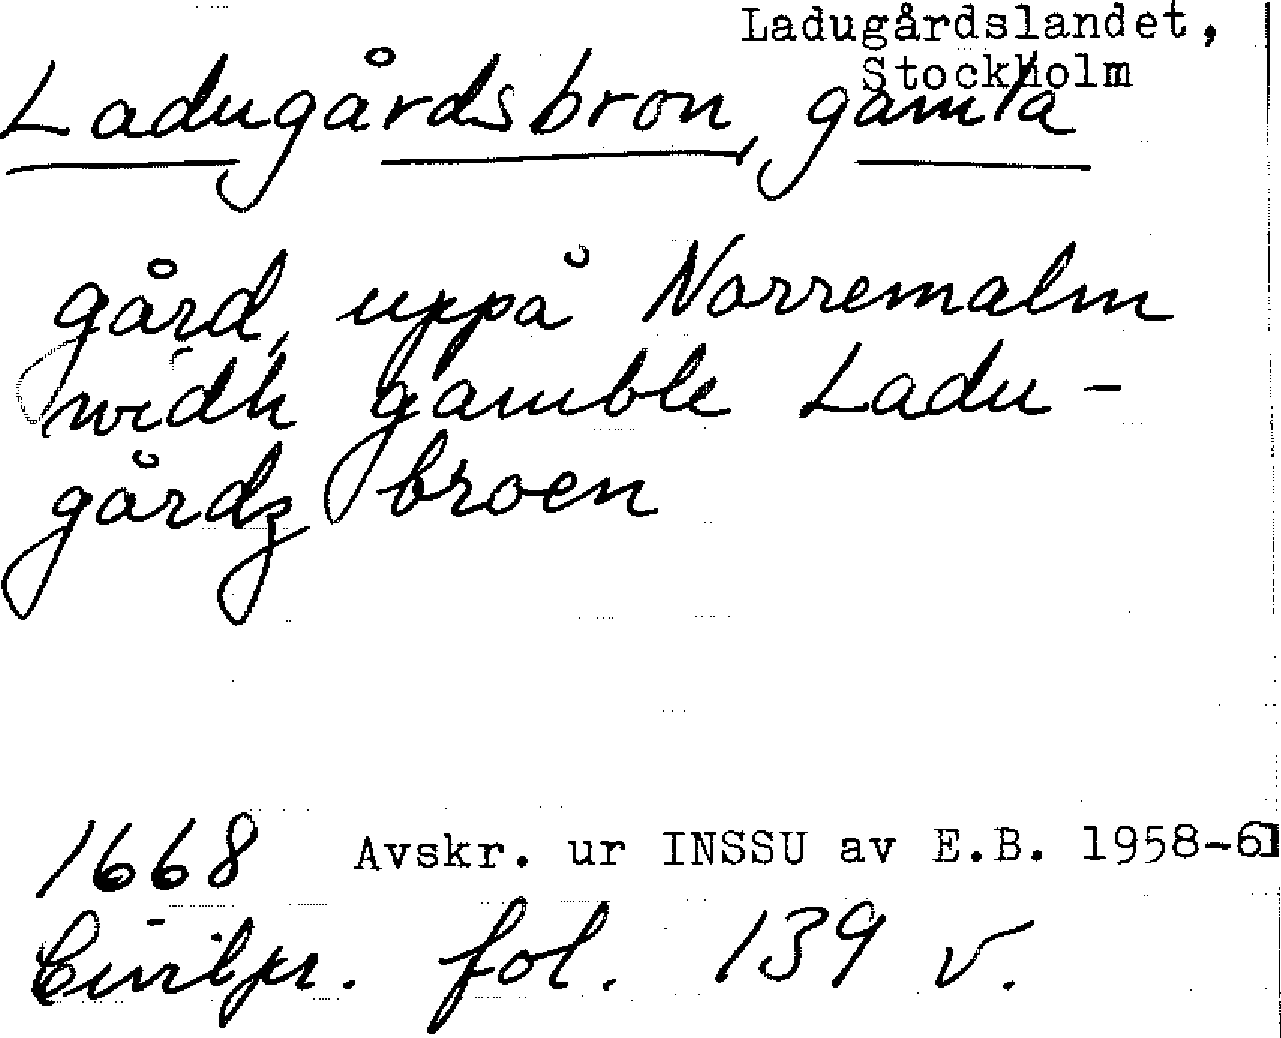 Ladugårdslandet,
Stockholm
Ladugårdsbron, gamla
gård, uppå Norremalm
widh gamble Ladu-
gårdz broen
1668 Avskr. ur INSSU av E.B. 1958-61
Civilpr. fol. 139 v.